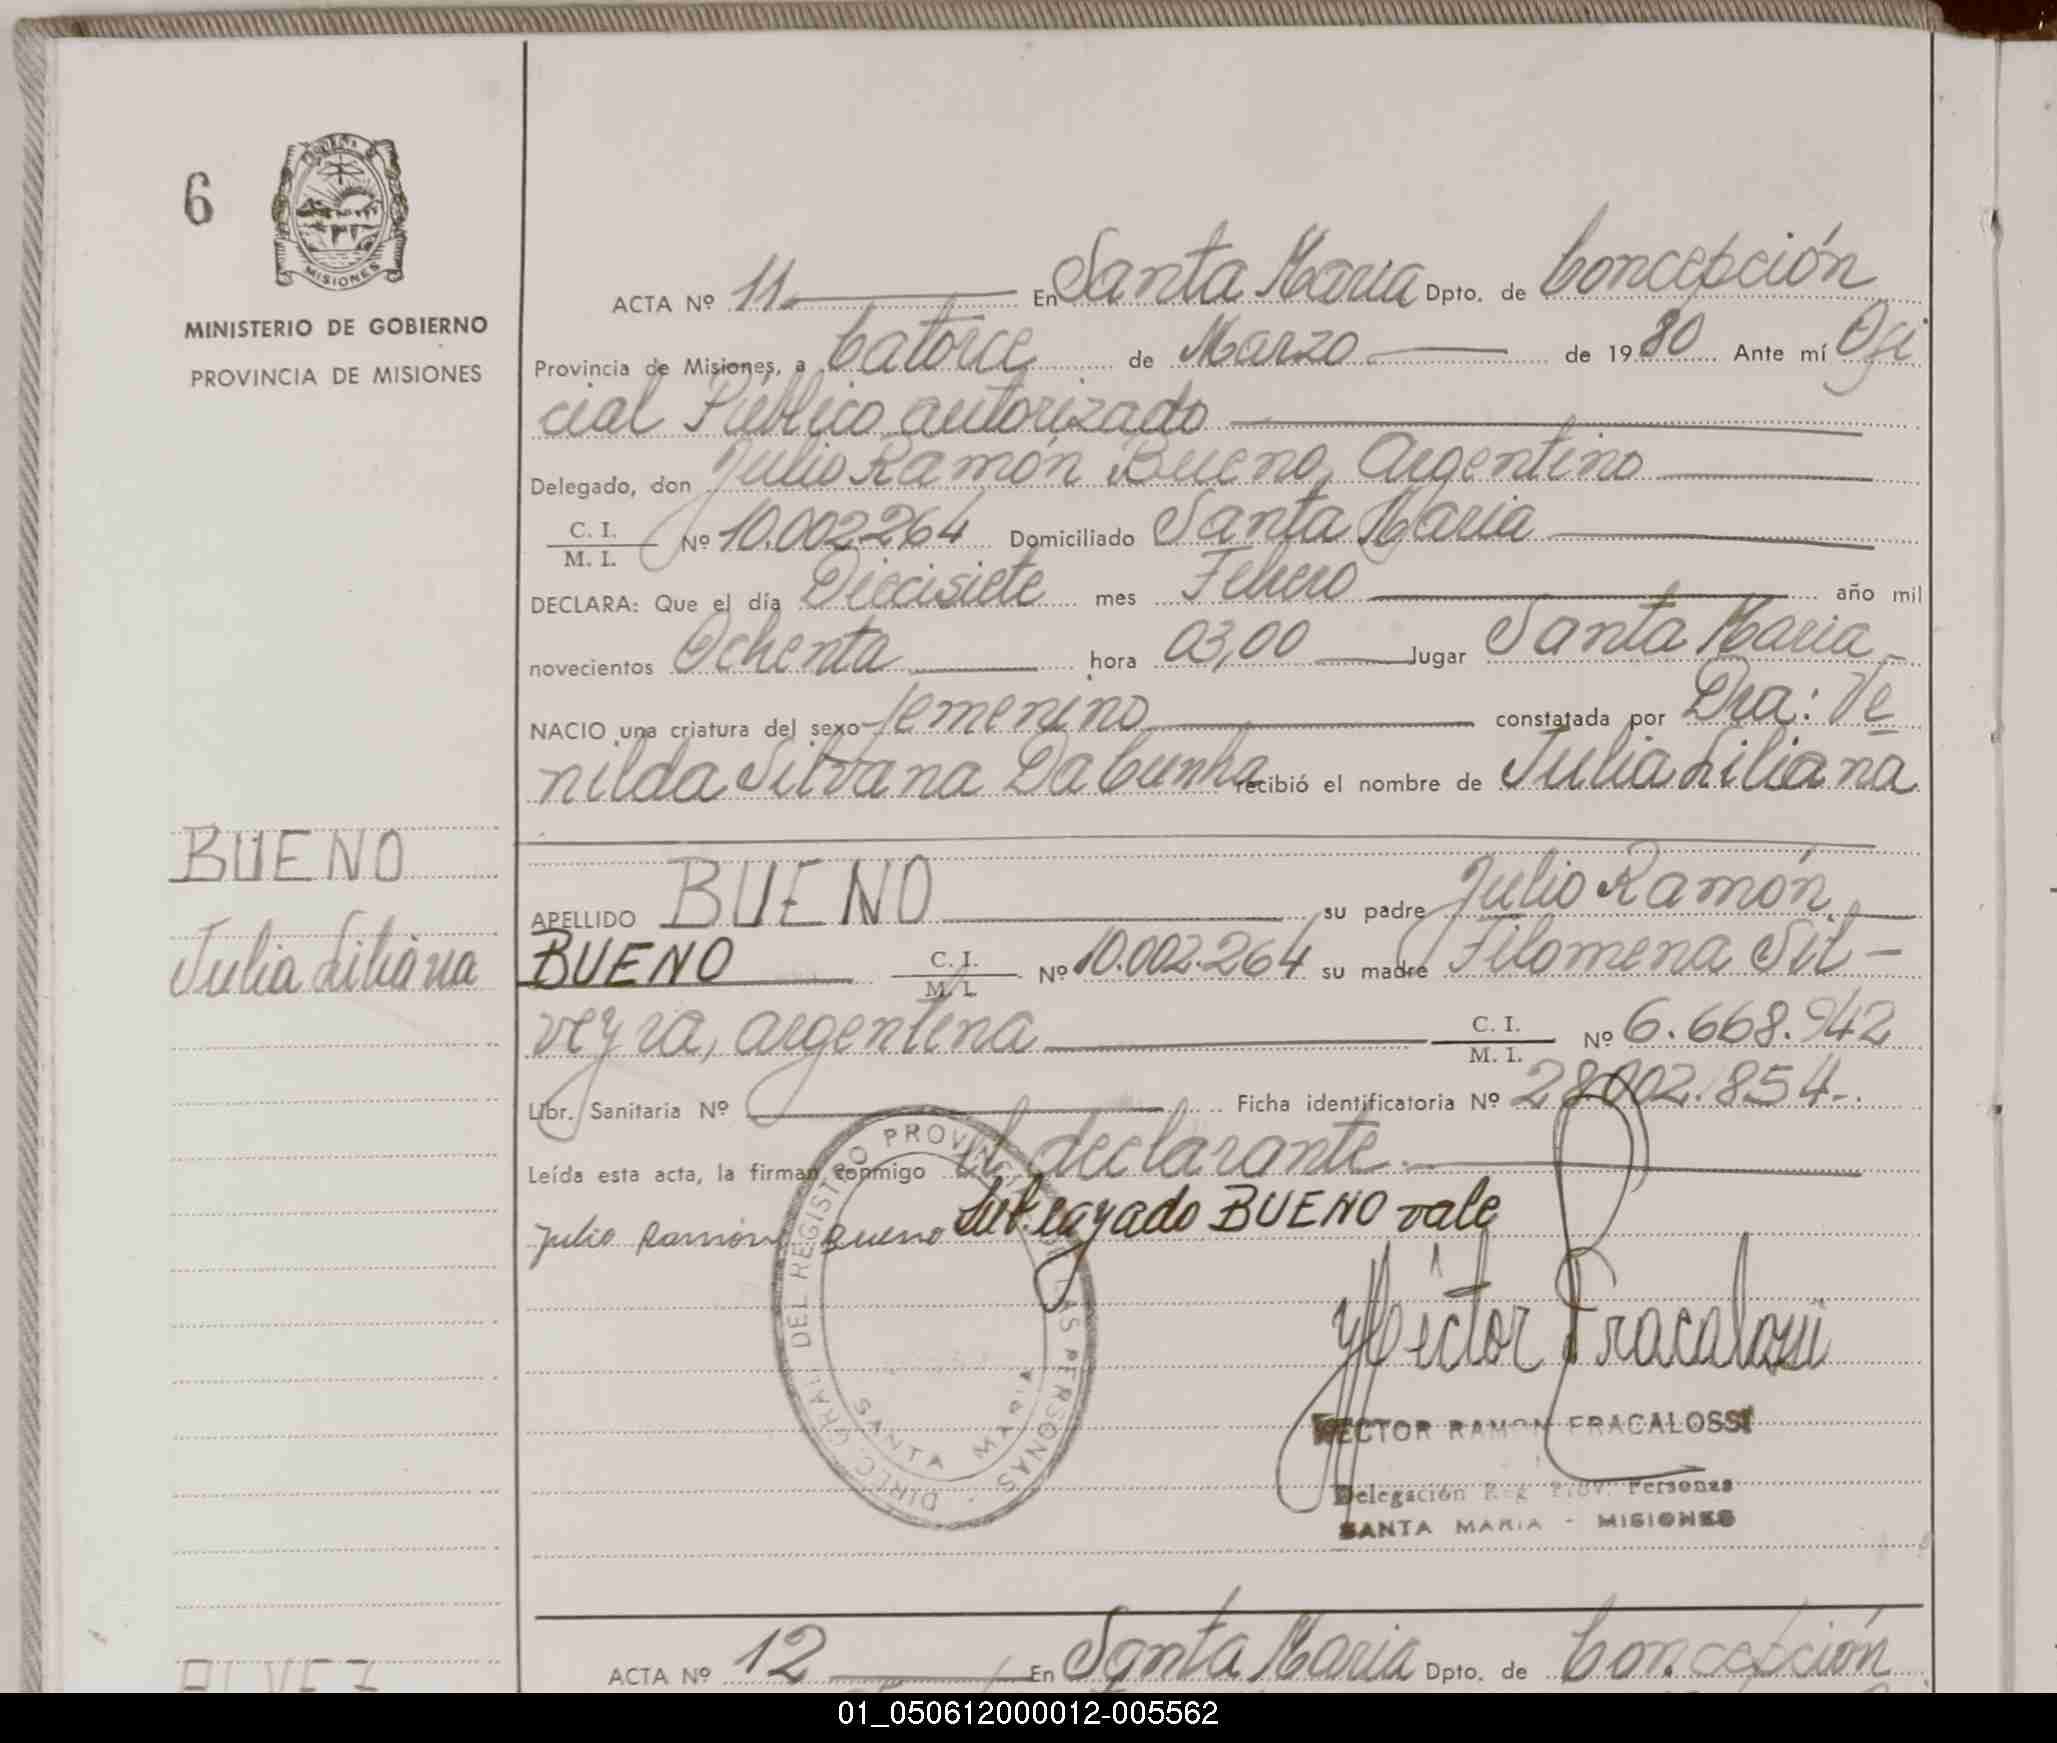 6
MISIONES
MINISTERIO DE GOBIERNO
PROVINCIA DE MISIONES
ACTA Nº 11 En Santa Maria Dpto. de Concepción
Provincia de Misiones, a Catorce de Marzo de 1980 Ante mí Ofi
cial Público autorizado
Delegado, don Julio Ramón Bueno, Argentino
C. I.
M. I. Nº 10.002.264 Domiciliado Santa Maria
DECLARA: Que el día Diecisiete mes Febrero año mil
novecientos Ochenta hora 03,00 lugar Santa Maria
NACIO una criatura del sexo femenino constatada por Dra: Ve
nilda Silvana Da Cunha recibió el nombre de Julia Liliana
BUENO
Julia Liliana
APELLIDO BUENO su padre Julio Ramón
BUENO C. I.
M. I. Nº 10.002.264 su madre Filomena Sil-
veyra, argentina C. I.
M. I. Nº 6.668.942
Libr. Sanitaria Nº Ficha identificatoria Nº 28.002.854-.
Leída esta acta, la firman conmigo el declarante.
Julio Ramón Bueno Subrayado BUENO vale
DIREC. GRAL. DEL REGISTRO PROVINCIAL DE LAS PERSONAS
SANTA MARIA
Hector Fracalossi
HECTOR RAMON FRACALOSSI
Delegación Reg. Prov. Personas
SANTA MARIA - MISIONES
ACTA Nº 12 En Santa Maria Dpto. de Concepción
01_050612000012-005562